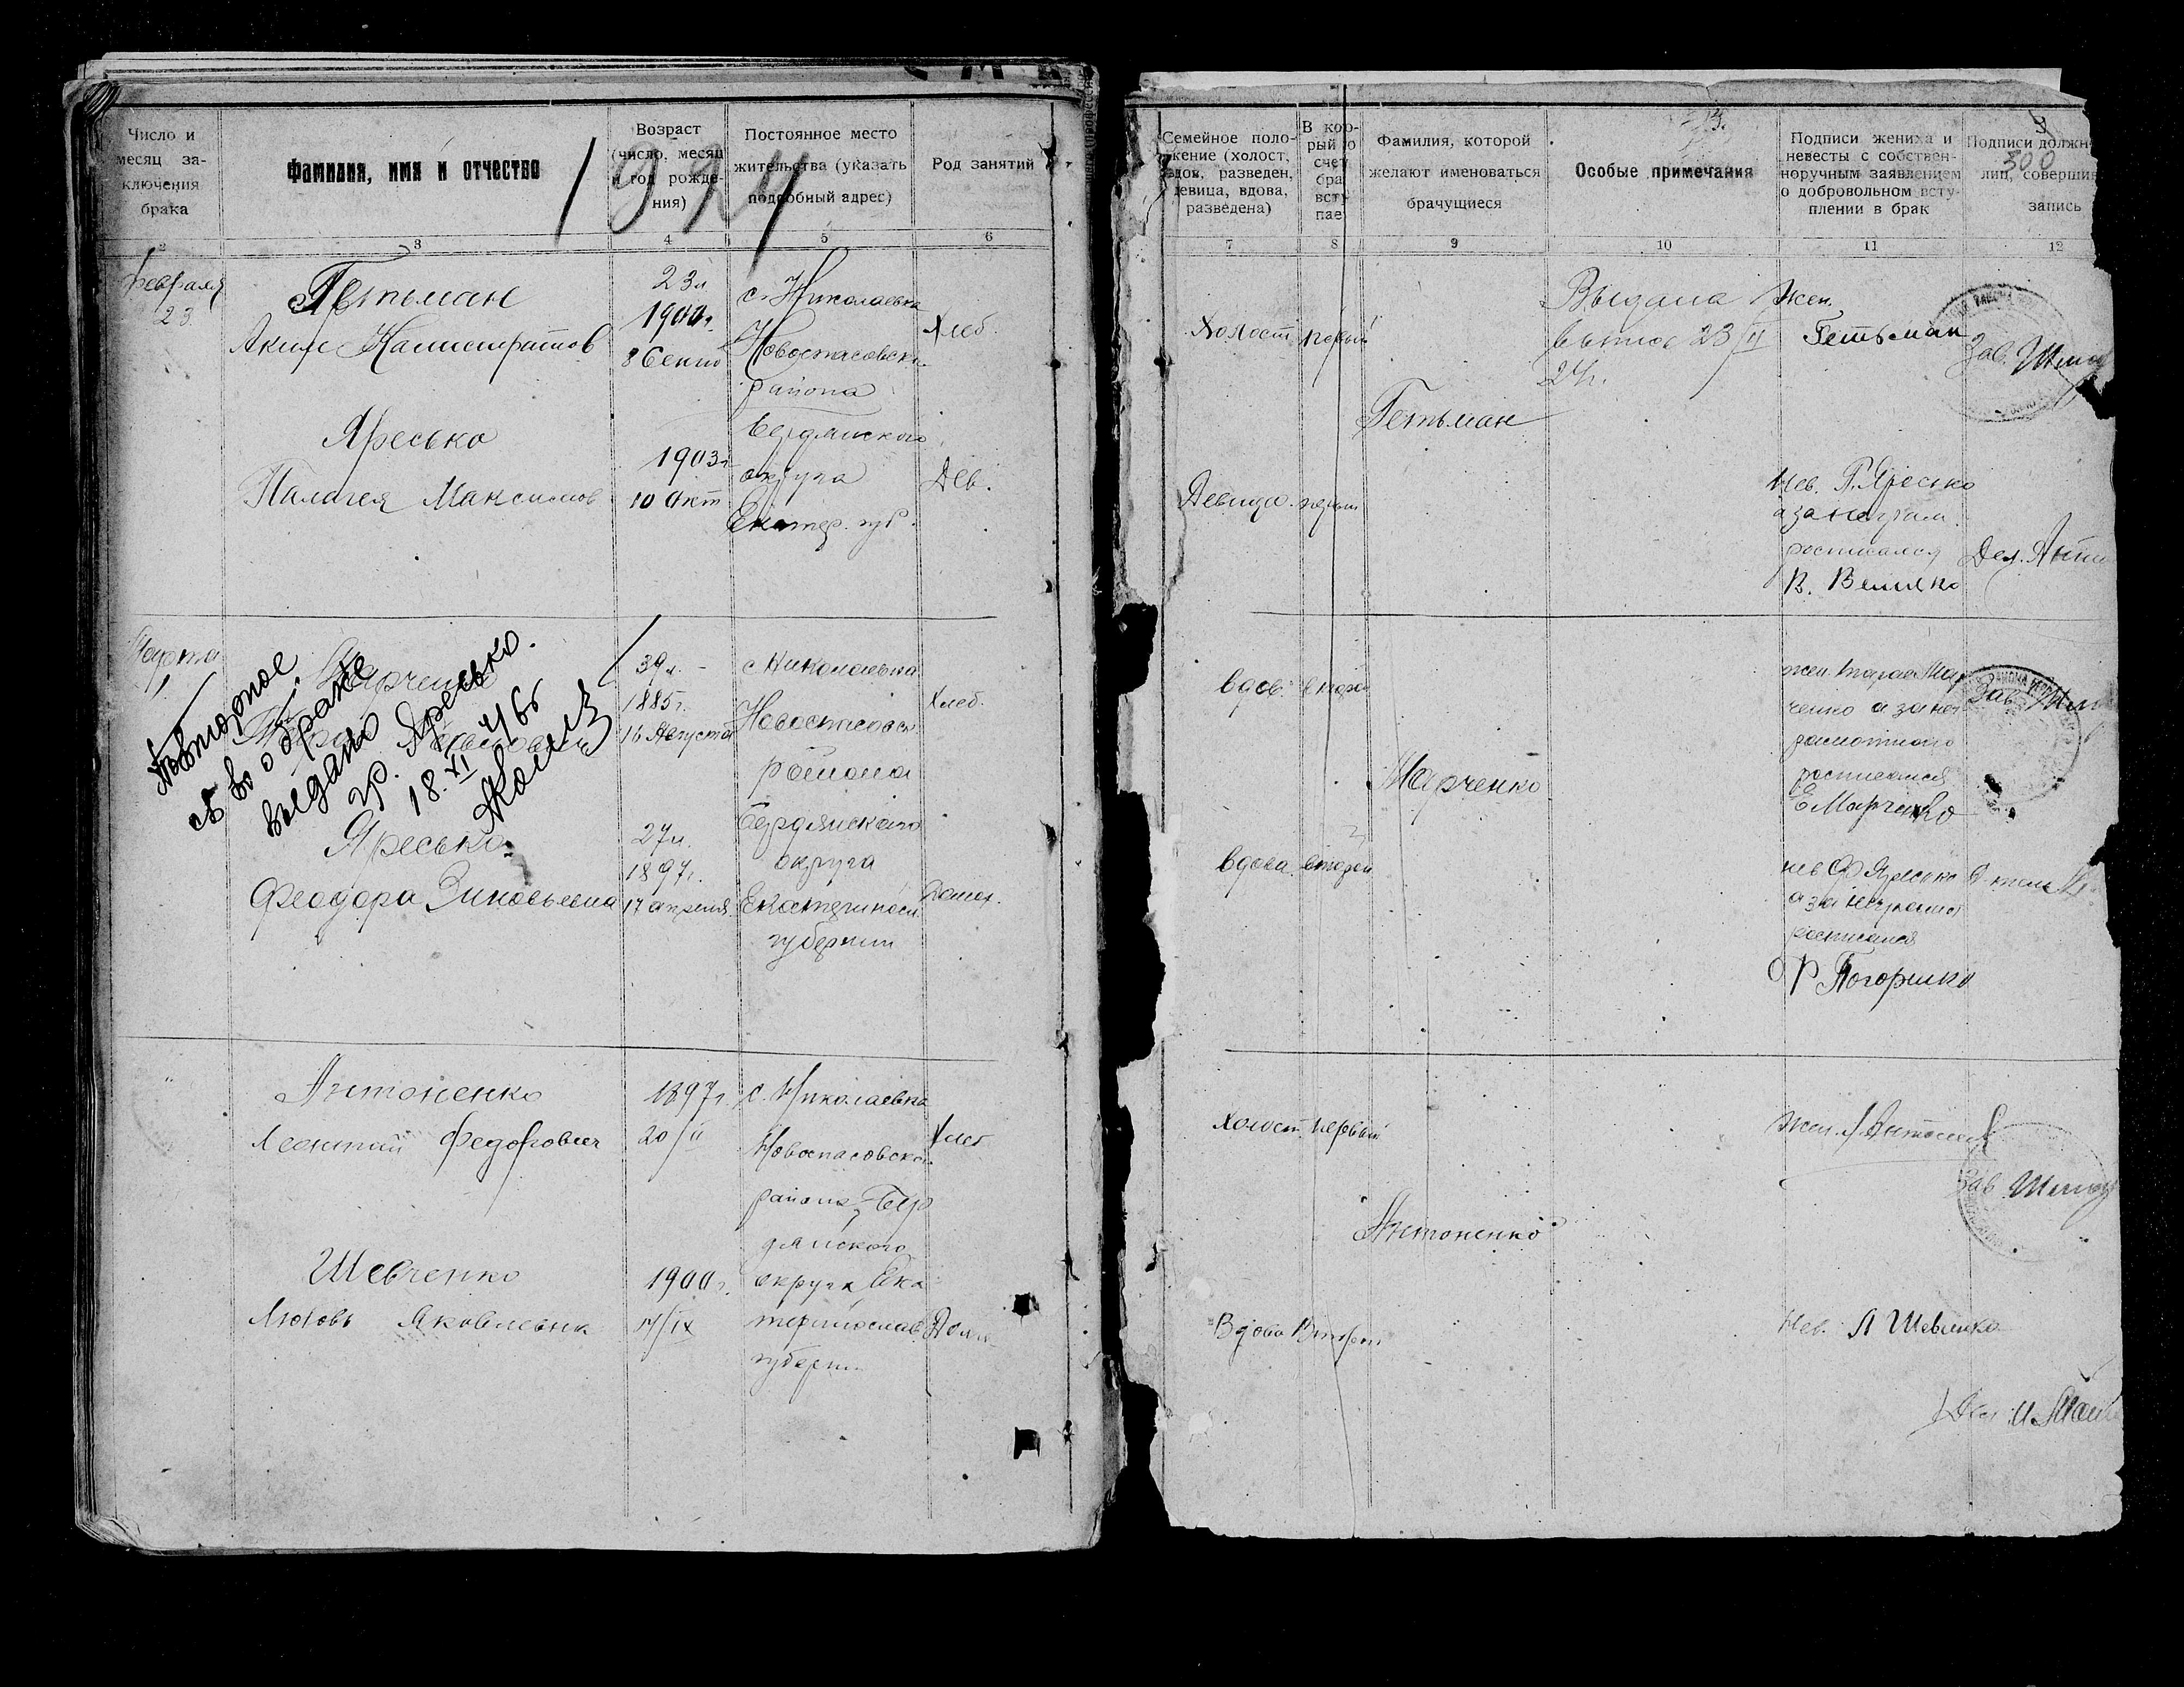 Число и
месяц за-
ключения
брака
Фамилия, имя и отчество
Возраст
(число, месяц
год рожде-
ния)
Постоянное место
жительства (указать
подробный адрес)
Род занятий
1924
2 3 4 5 6
Февраля
23
Гетьман
Аким Калистратов
23 л
1900 г.
8 Сент
с. Николаевка
Новоспасовск.
района
Бердянского
округа
Екатер. губ.
Хлеб.
Яресько
Палагея Максимов
1903 г
10 Окт
Дев.
Марта
1
Марченко
39 л.
1885 г.
16 Августа
с Николаевка
Новоспасовск
района
Бердянского
округа
Екатериносл
губернии
Хлеб.
Повторное
св во о браке
выдано
гр. Яресько.
18.XI 46г
Яресько
Феодора Зиновьевна
27 л.
1897 г.
17 апреля
Домох.
"
Антоненко
Леонтий Федорович
1897 г.
20/II
с. Николаевка
Новоспасовског
района Бер
дянского
округа Ека
теринослав
губерн
Хлеб
Шевченко
Любовь Яковлевна
1900 г.
17/IX
Дом
Семейное поло-
жение (холост,
вдов, разведен,
девица, вдова,
разведена)
В кото-
рый по
счету
бра
всту
пае
Фамилия, которой
желают именоваться
брачущиеся
Особые примечания
Подписи жениха и
невесты с собствен-
норучным заявлением
о добровольном всту-
плении в брак
Подписи должн
лиц, соверши
запись
300
7 8 9 10 11 12
Холост первый
Гетьман
Выдана
выпись 23/II
24 г.
Жен.
Гетьман
Зав.
Девица первый
Нев. П. Яресько
а за неграм.
росписался
В. Велико
Дел.
вдов. второй
Марченко
жен. Тарас Мар
ченко а за негра
рамотного
росписался
Марченко
Зав
вдова второй
нев Ф Яресько
а за неграмот
росписался
Холост первый
Антоненко
Жен. Л. Антонен
Зав
Вдова Второй
Нев. Л Шевченко